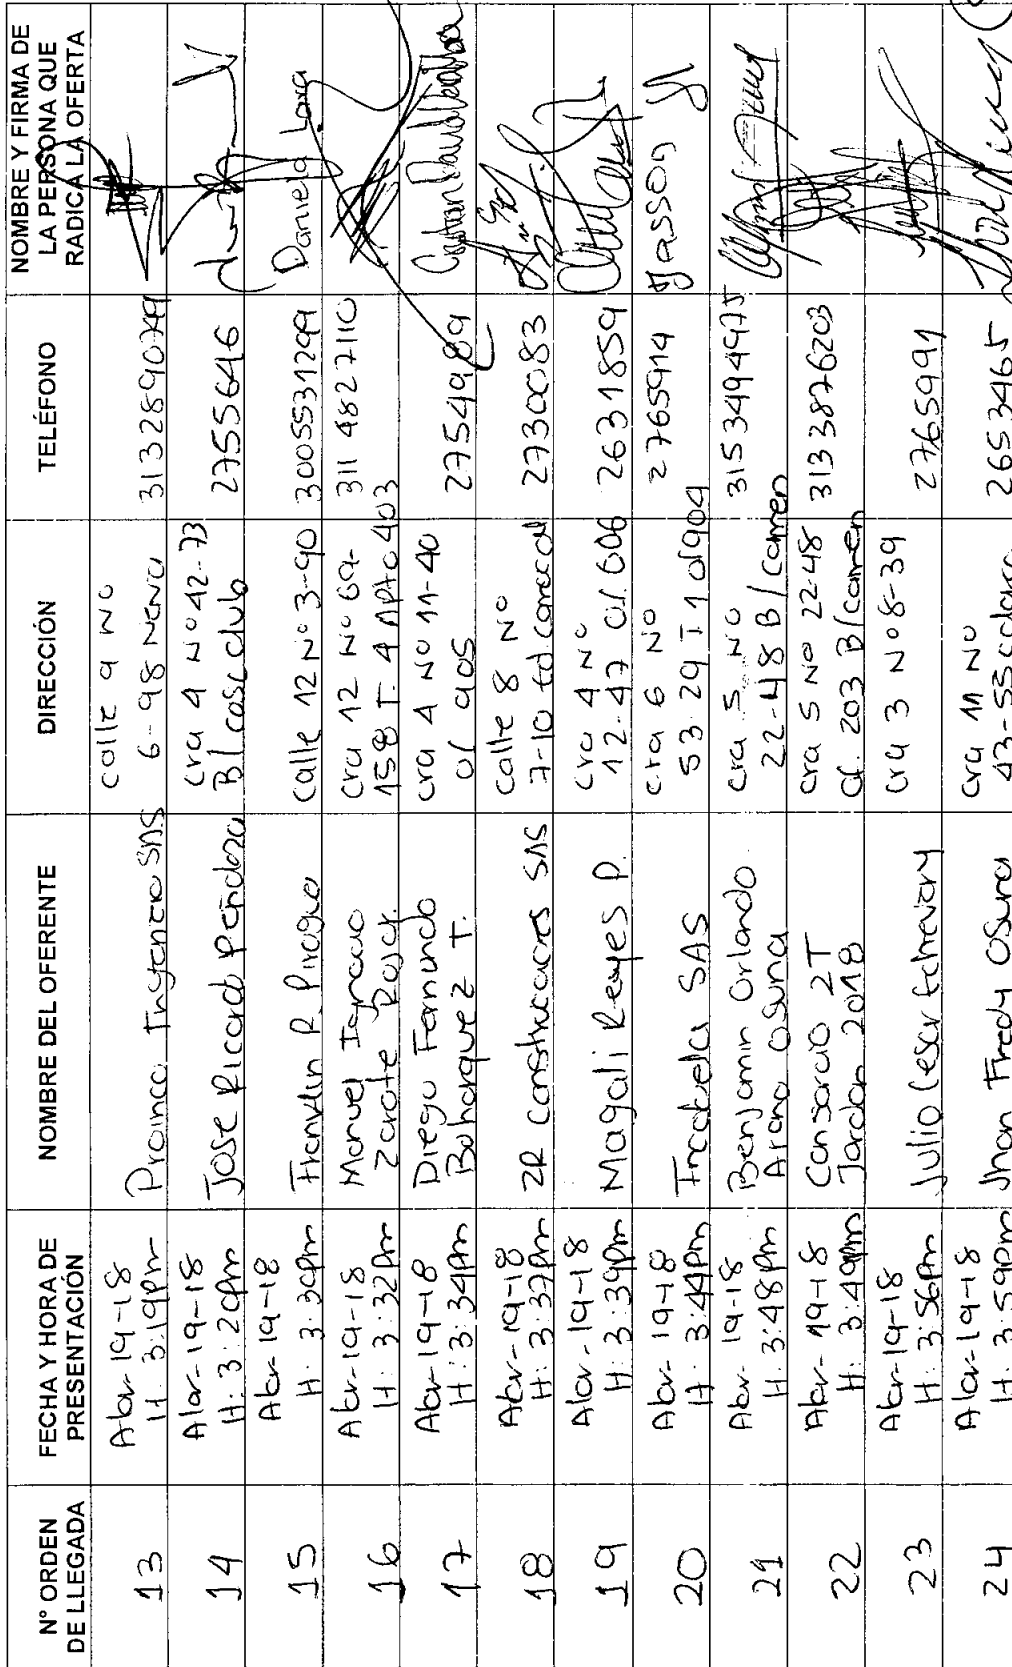 N° ORDEN
DE LLEGADA
FECHA Y HORA DE
PRESENTACIÓN
NOMBRE DEL OFERENTE
DIRECCIÓN
TELÉFONO
NOMBRE Y FIRMA DE
LA PERSONA QUE
RADICA LA OFERTA
13
Abr-19-18
H 3:19pm
Proinco Ingenieria SAS
calle 9 No
6-98 Neiva
3132890749
14
Abr-19-18
H: 3:20pm
Jose Ricardo Pendoza
cra 4 N° 42-73
B/ casa club
2755646
15
Abr-19-18
H: 3:30pm
Franklin R. Piragua
Calle 12 N° 3-90
3005531299
Daniela Lara
16
Abr-19-18
H: 3:32pm
Manuel Ignacio
Zarate Rojas.
cra 12 N° 69-
158 T. 4 Apto 403
311 4827110
17
Abr-19-18
H: 3:34pm
Diego Fernando
Bohorquez T.
cra 4 N° 11-40
of 905
2754989
18
Abr-19-18
H: 3:37pm
2R Construcciones SAS
calle 8 N°
7-10 Ed. caracol
2730083
19
Abr-19-18
H: 3:39pm
Magali Reyes P.
cra 4 N°
12-47 of. 606
2631859
20
Abr-19-18
H: 3:44pm
SAS
cra 6 N°
53 29 T. 1 of 904
2765914
Jasson
21
Abr-19-18
H: 3:48pm
Benjamin Orlando
Arana Osuna
cra 5 No
22-48 B/ Carmen
3153494975
22
Abr-19-18
H: 3:49pm
Consorcio 2T
Jordan 2018
cra 5 N° 22-48
of. 203 B/ Carmen
3133876203
23
Abr-19-18
H: 3:56pm
Julio Cesar Echeverry
cra 3 N° 8-39
2765991
24
Abr-19-18
H: 3:59pm
Jhon Fredy Osuna
cra 11 N°
43-55
2653465